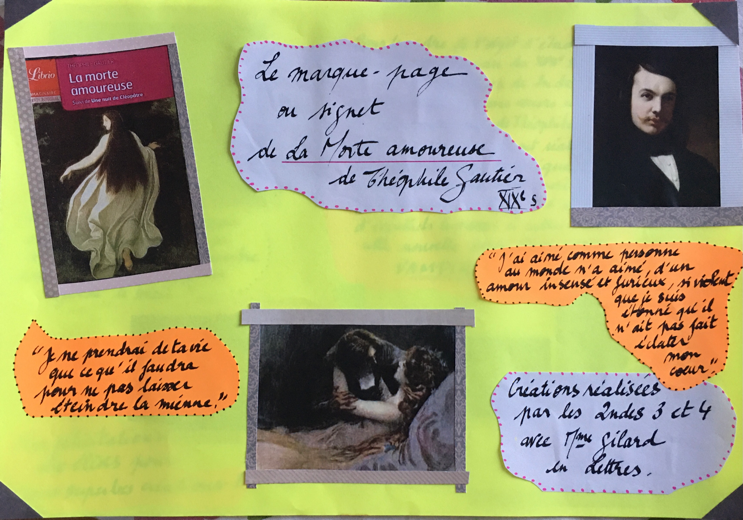 Librio
La morte
amoureuse
Suivi de Une nuit de Cléopâtre
Le marque-page
ou signet
de La Morte amoureuse
de Théophile Gautier
XIXe s
"J'ai aimé comme personne
au monde n'a aimé, d'un
amour insensé et furieux, si violent
que je suis
étonné qu'il
n'ait pas fait
éclater
mon
coeur"
"Je ne prendrai de ta vie
que ce qu'il faudra
pour ne pas laisser
éteindre la mienne."
Créations réalisées
par les 2ndes 3 et 4
avec Mme Gilard
en Lettres.